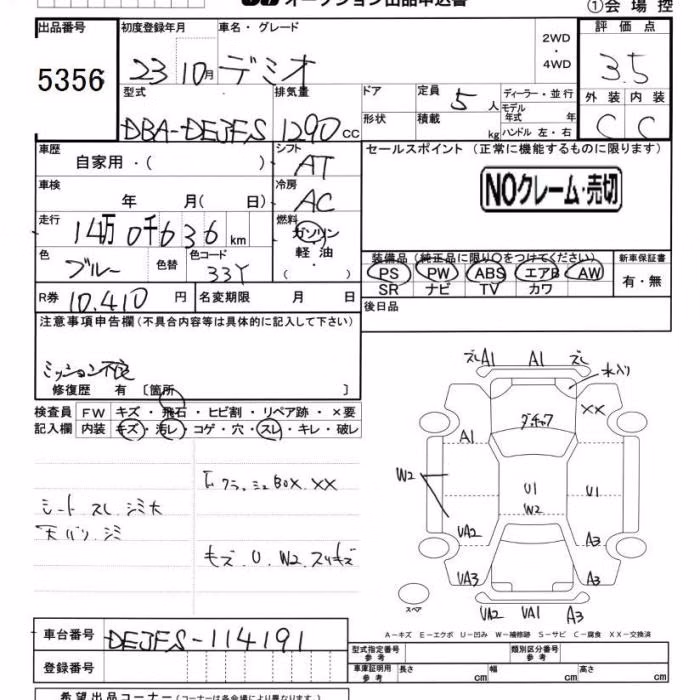 オークション出品申込書
①会場控
出品番号 初度登録年月 車名・グレード 2WD・4WD 評価点
5356 23 10月 デミオ 3.5
型式 排気量 ドア 定員 5人 ディーラー・並行 外装 内装
DBA-DEJFS 1290cc 形状 積載 kg モデル年式 年 ハンドル 左・右 C C
車歴 自家用・( ) シフト AT セールスポイント(正常に機能するものに限ります)
車検 年 月( 日) 冷房 AC NOクレーム・売切
走行 14万0千636km 燃料 ガソリン 軽油 ( ・ )
色 ブルー 色替 色コード 33Y
装備品(純正品に限り〇をつけてください) 新車保証書
PS PW ABS エアB AW 有・無
SR ナビ TV カワ
R券 10.410円 名変期限 月 日 後日品
注意事項申告欄(不具合内容等は具体的に記入して下さい)
ミッション不良
修復歴 有 〔箇所 〕
検査員 FW キズ・飛石・ヒビ割・リペア跡・×要
記入欄 内装 キズ・汚レ・コゲ・穴・スレ・キレ・破レ
シート スレ シミ大
天バリ シミ
モズ.U.W2.スリキズ
ズレ A1 A1 ズレ 水入り
XX
A1
W2
U1 U1
W2
UA2 A3
UA3 A3
スペア
UA2 UA1 A3
A-キズ E-エクボ U-凹み W-補修跡 S-サビ C-腐食 XX-交換済
車台番号 DEJFS-114191
登録番号
型式指定番号 参考 類別区分番号 参考
車庫証明用 参考 長さ cm 幅 cm 高さ cm
希望出品コーナー(コーナーは各会場により異なります。)